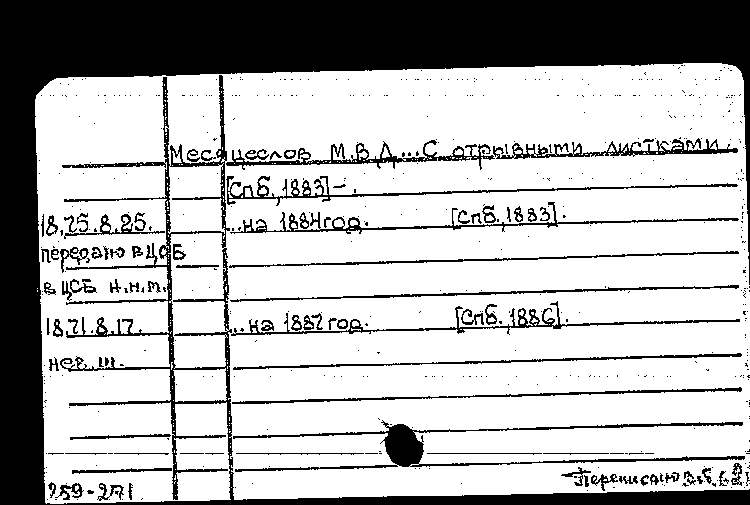 Месяцеслов М.В.Д...С отрывными листками.
[Спб., 1883] - .
18.75.8.25. ...на 1884 год. [Спб., 1883].
передано в ЦСБ
в ЦСБ н.н.т.
18.71.8.17. ...на 1887 год. [Спб., 1886].
259-271 Переписано